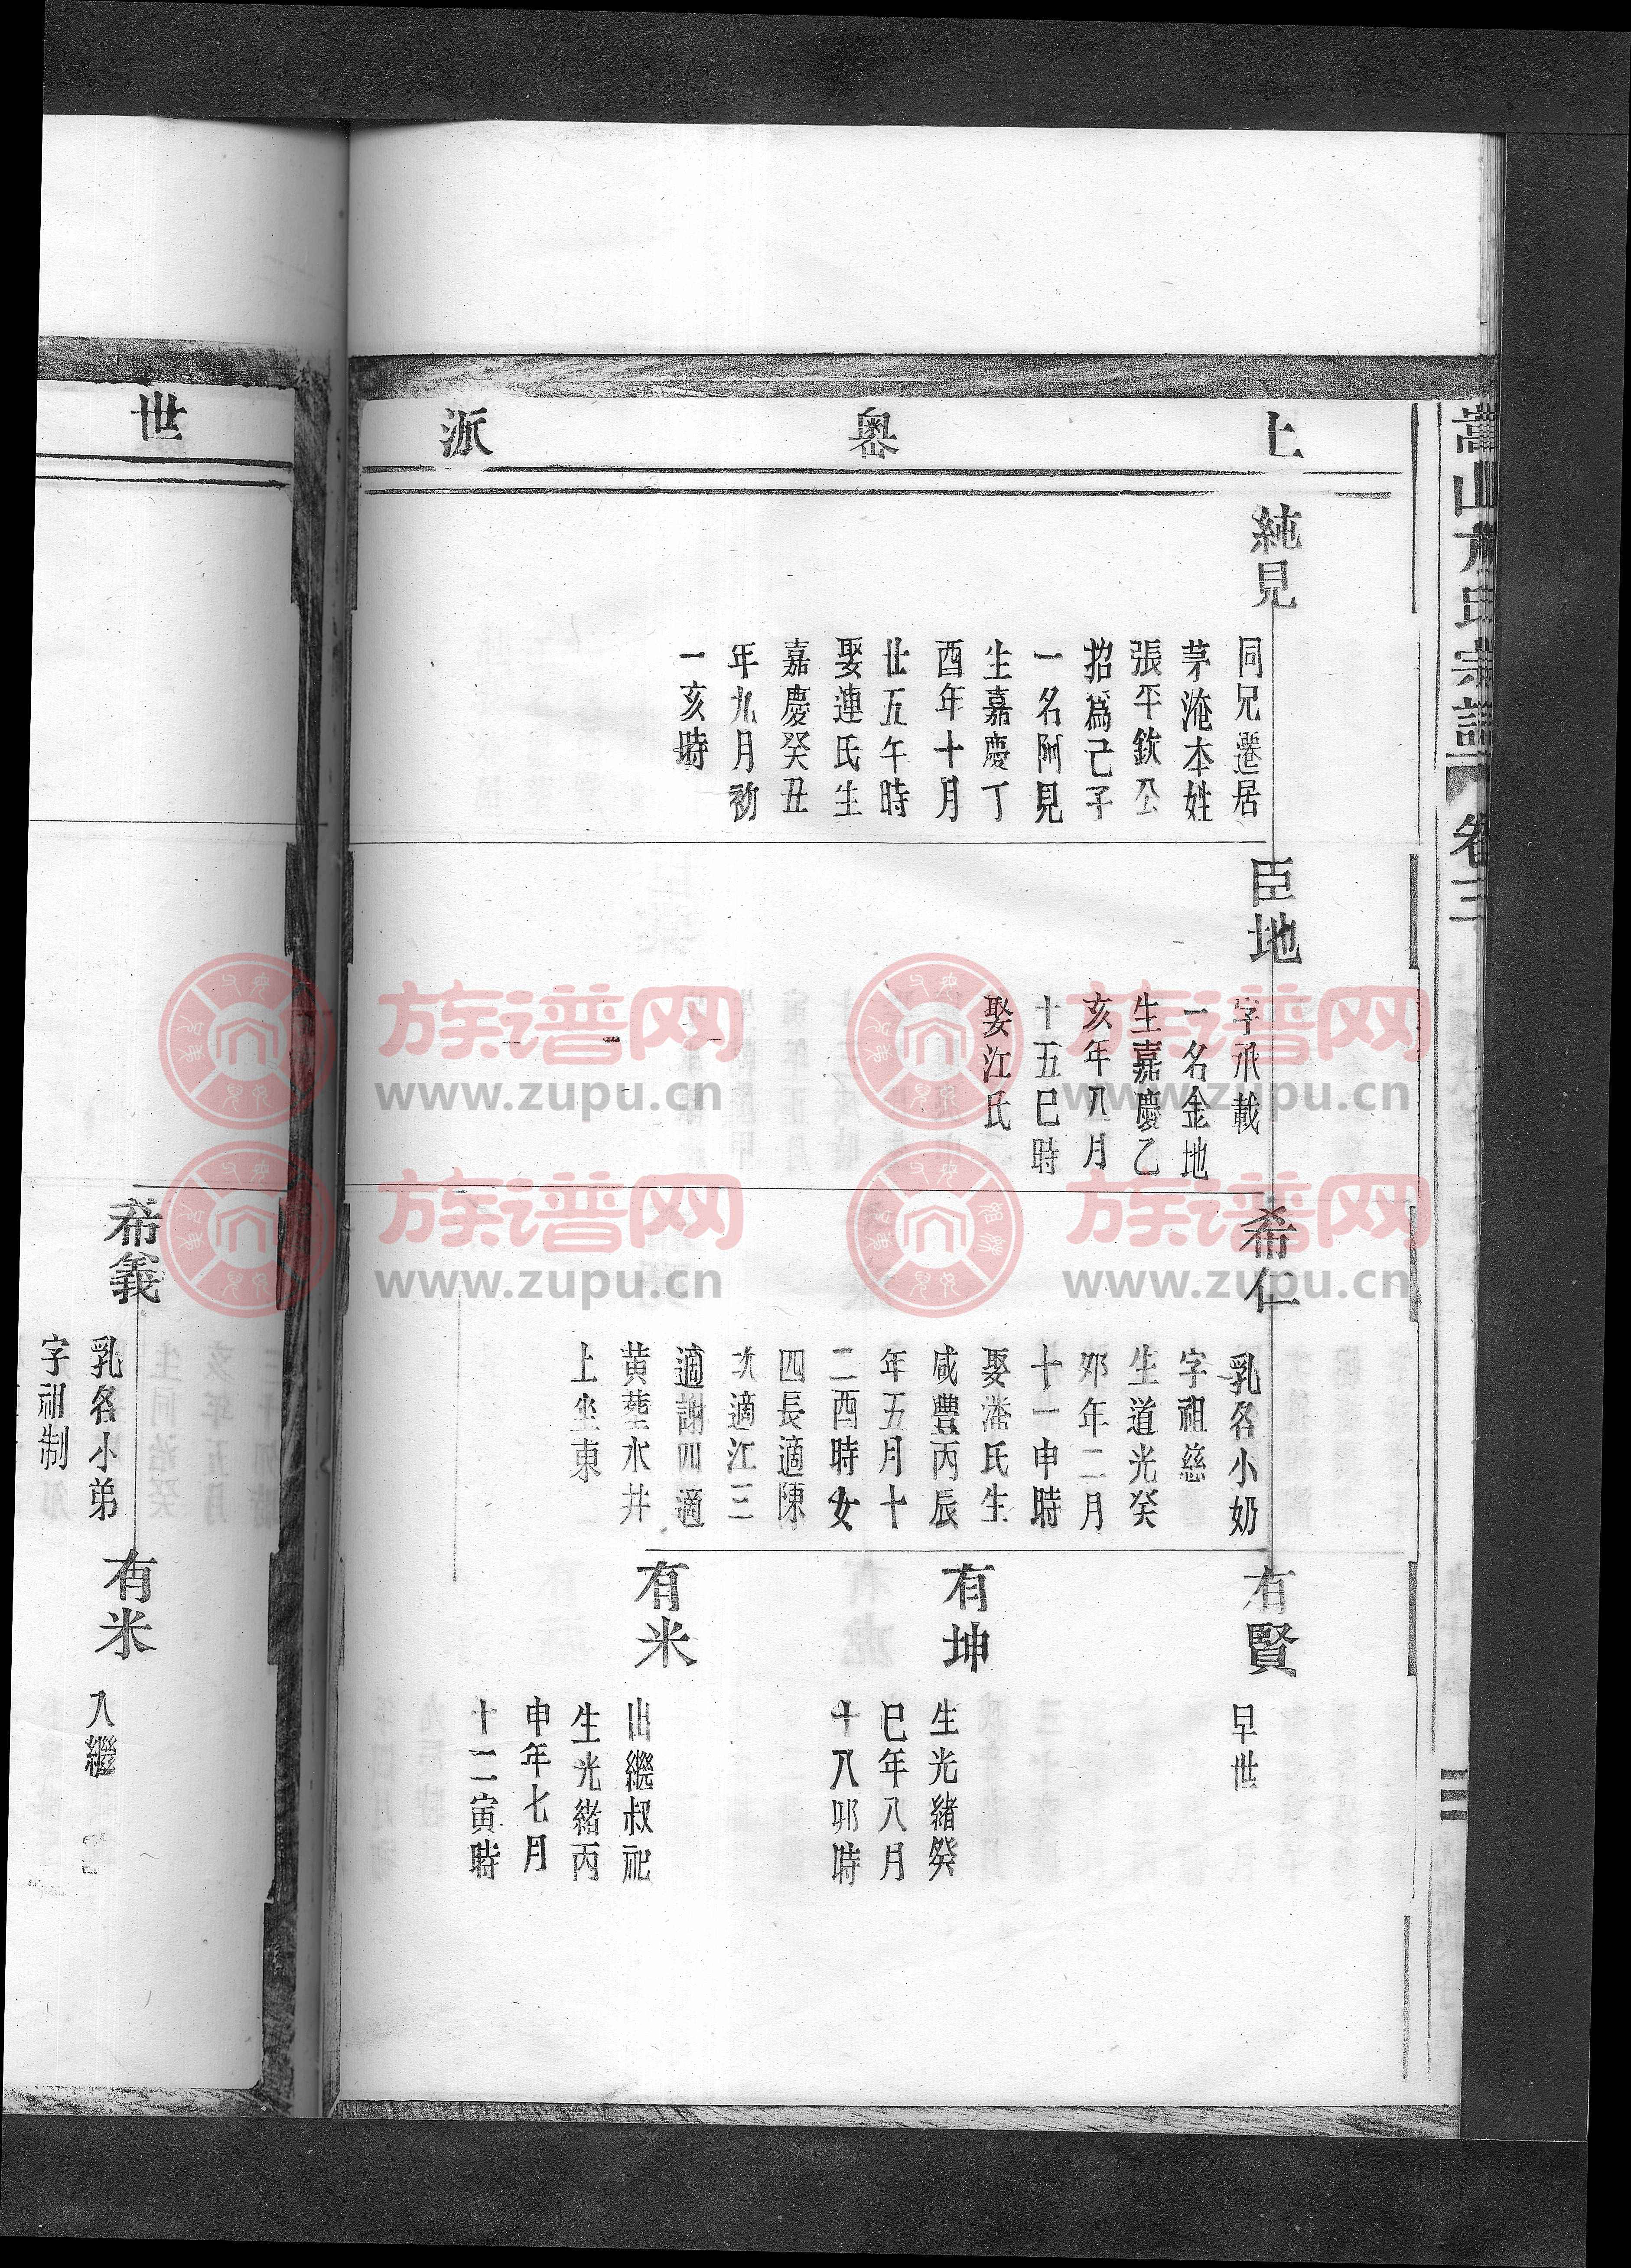 上奧派
純見
同兄遷居
茅淹本姓
張平欽公
招為己子
一名阿見
生嘉慶丁
酉年十月
廿五午時
娶連氏生
嘉慶癸丑
年九月初
一亥時
臣地
字承載
一名金地
生嘉慶乙
亥年八月
十五巳時
娶江氏
希仁
乳名小奶
字祖慈
生道光癸
卯年二月
十一申時
娶潘氏生
咸豐丙辰
年五月十
二酉時女
四長適陳
次適江三
適謝四適
黄墓水井
上坐東
有賢
早世
有坤
生光緒癸
巳年八月
十八卯時
有米
出繼叔祀
生光緒丙
申年七月
十二寅時
世
希義
乳名小弟
字祖制
有米
入繼
卷三
族谱网
www.zupu.cn
族谱网
www.zupu.cn
族谱网
www.zupu.cn
族谱网
www.zupu.cn